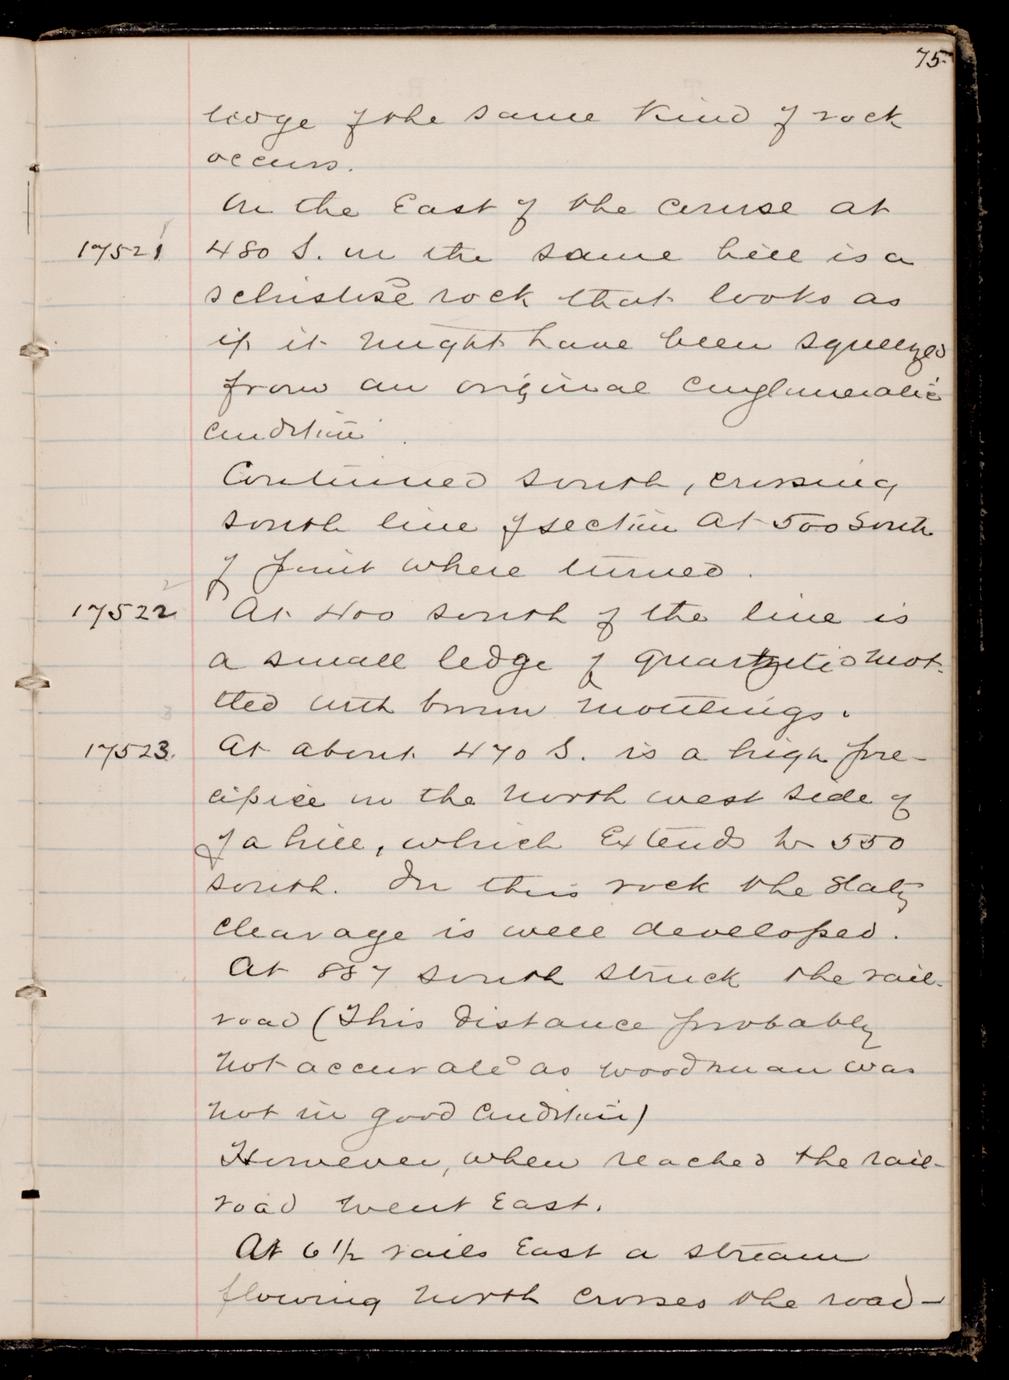 75
ledge of the same kind of rock
occurs.
On the East of the course at
17521 480 S. on the same hill is a
schistose rock that looks as
if it might have been squeezed
from an original conglomeratic
condition.
Continued south, crossing
south line of section at 500 South
of point where turned.
17522 At 400 south of the line is
a small ledge of quartzite mot-
tled with brown mottlings.
17523. At about 470 S. is a high pre-
cipice on the north west side of
of a hill, which extends to 550
south. In this rock the slaty
cleavage is well developed.
At 887 south struck the rail-
road (This distance probably
not accurate as woodman was
not in good condition)
However, when reached the rail-
road went East.
At 6 1/2 rails East a stream
flowing north crosses the road-